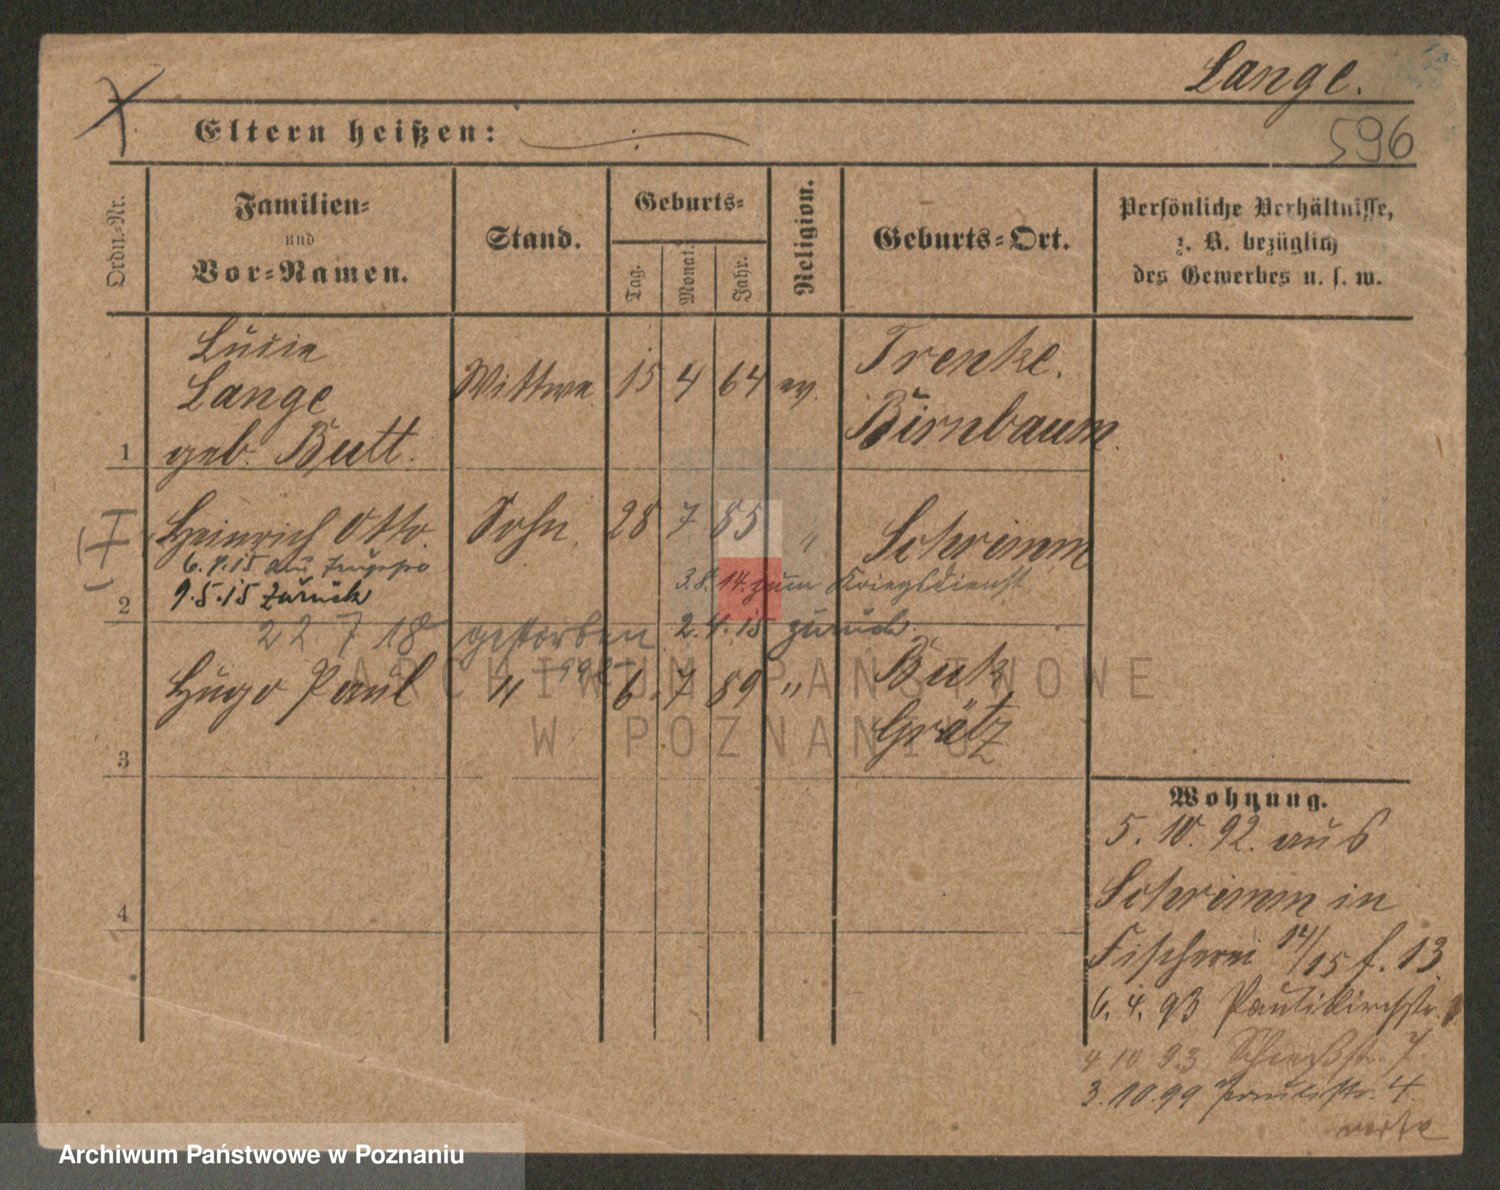 Lange.
Eltern heißen:
596
Ordn.-Nr.
Familien-
und
Vor-Namen.
Stand.
Geburts-
Tag.
Monat.
Jahr.
Religion.
Geburts-Ort.
Persönliche Verhältnisse,
z. B. bezüglich
des Gewerbes u. s. w.
Lucie
Lange
geb. Butt.
1
Wittwe.
15 4 64 ev.
Trenke.
Birnbaum.
Heinrich Otto.
Sohn.
28 7 85 "
Schrimm
9.5.15 zurück
3.8.14. zum Kriegsdienst
2
22. 7 18 gestorben
2.4.15 zurück.
Hugo Paul
" 6. 7 89 "
Buk
Grätz
3
4
Wohnung.
5. 10. 92. aus
Schrimm in
Fischerei 14/15 f. 13.
6. 4. 93 Paulikirchstr.
4 10 93 7.
3. 10. 99 4
ARCHIWUM PAŃSTWOWE
W POZNANIU
Archiwum Państwowe w Poznaniu